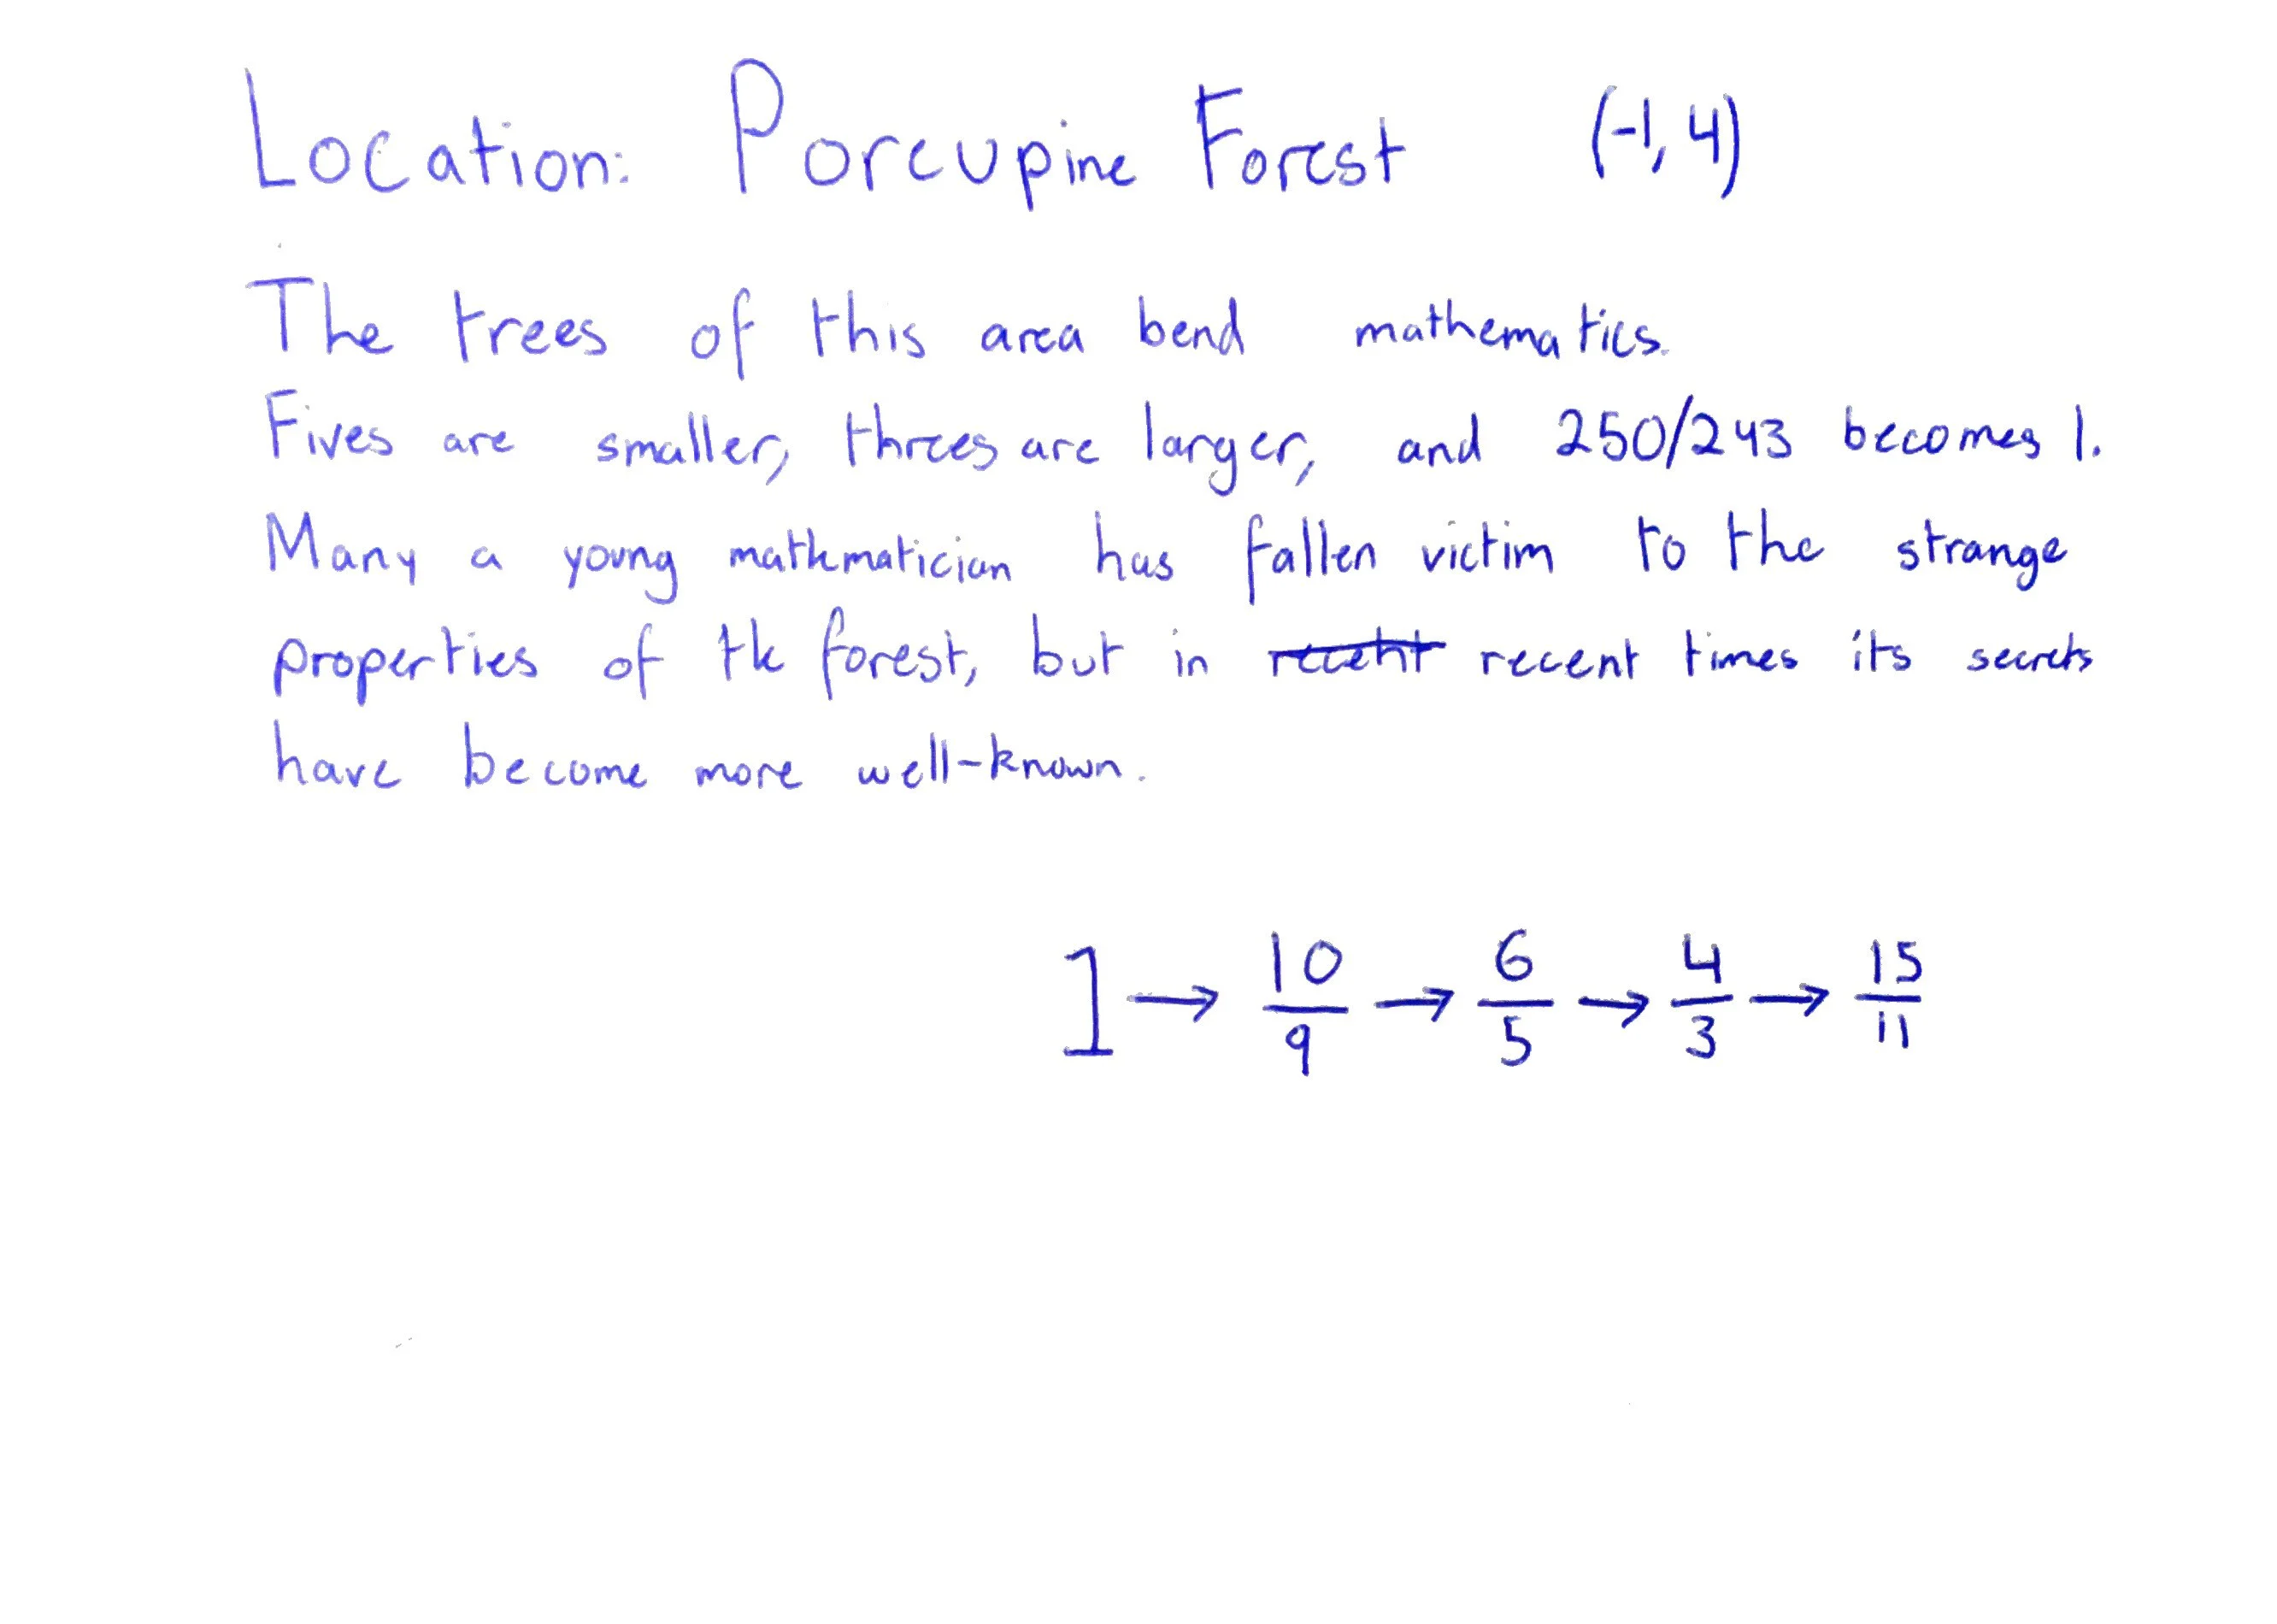 Location: Porcupine Forest (-1, 4)
The trees of this area bend mathematics.
Fives are smaller, threes are larger, and 250/243 becomes 1.
Many a young mathematician has fallen victim to the strange
properties of the forest, but in recent recent times its secrets
have become more well-known.
1 → 10/9 → 6/5 → 4/3 → 15/11